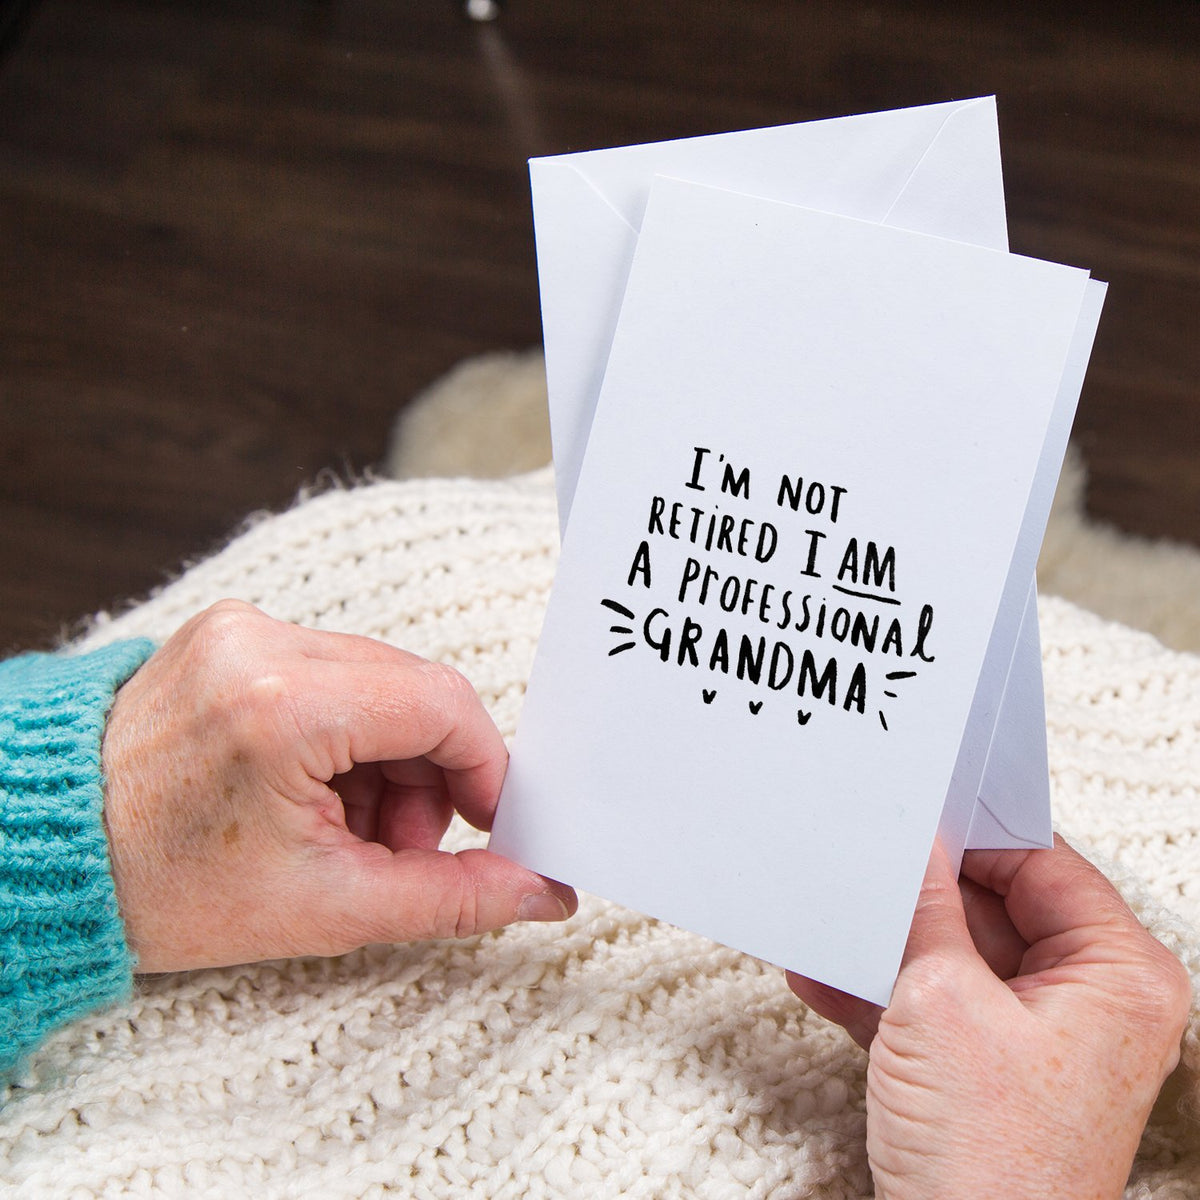 I'M NOT
RETIRED I AM
A PROFESSIONAL
GRANDMA